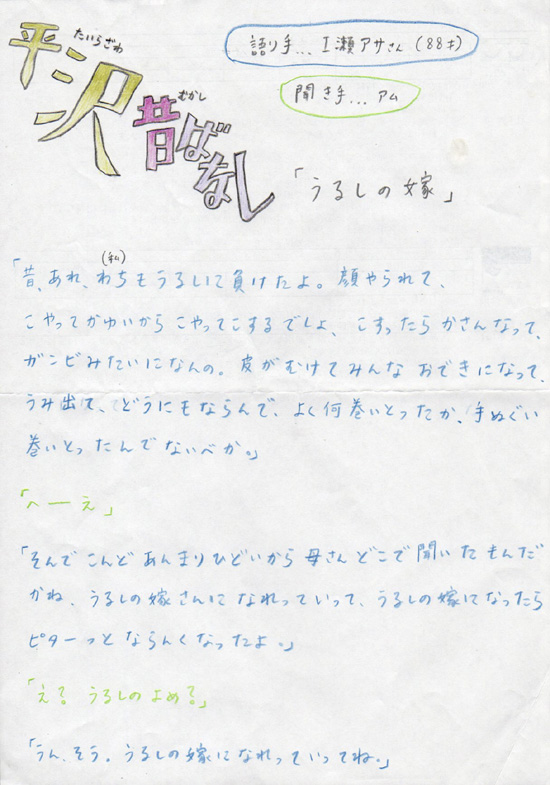 たいらざわ
平沢
むかし
昔ばなし
語り手... I瀬アサさん (88才)
聞き手... アム
「うるしの嫁」
(私)
「昔、あれ、わちもうるしにて負けたよ。顔やられて、
こやってかゆいからこやってこするでしょ、こすったらかさんなって、
ガンビみたいになんの。皮がむけてみんなおできになって、
うみ出て、どうにもならんで、よく何巻いとったか、手ぬぐい
巻いとったんでないべか。」
「へーえ」
「そんでこんどあんまりひどいから母さんどこで聞いたもんだ
かね、うるしの嫁さんになれっていって、うるしの嫁になったら
ピターっとならんくなったよ。」
「え？うるしのよめ？」
「うん、そう。うるしの嫁になれっていってね。」